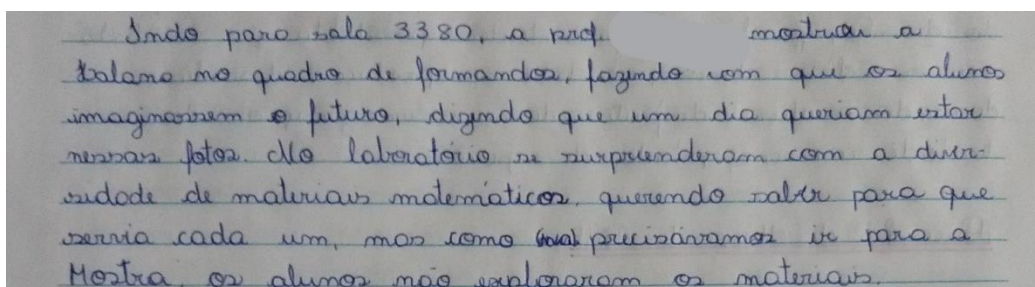 Indo para sala 3380, a prof. mostrou a
Balano no quadro de formandos, fazendo com que os alunos
imaginassem o futuro, dizendo que um dia queriam estar
nessas fotos. No laboratório se surpreenderam com a diver-
sidade de materiais matemáticos, querendo saber para que
servia cada um, mas como precisávamos ir para a
Mostra, os alunos não exploraram os materiais.